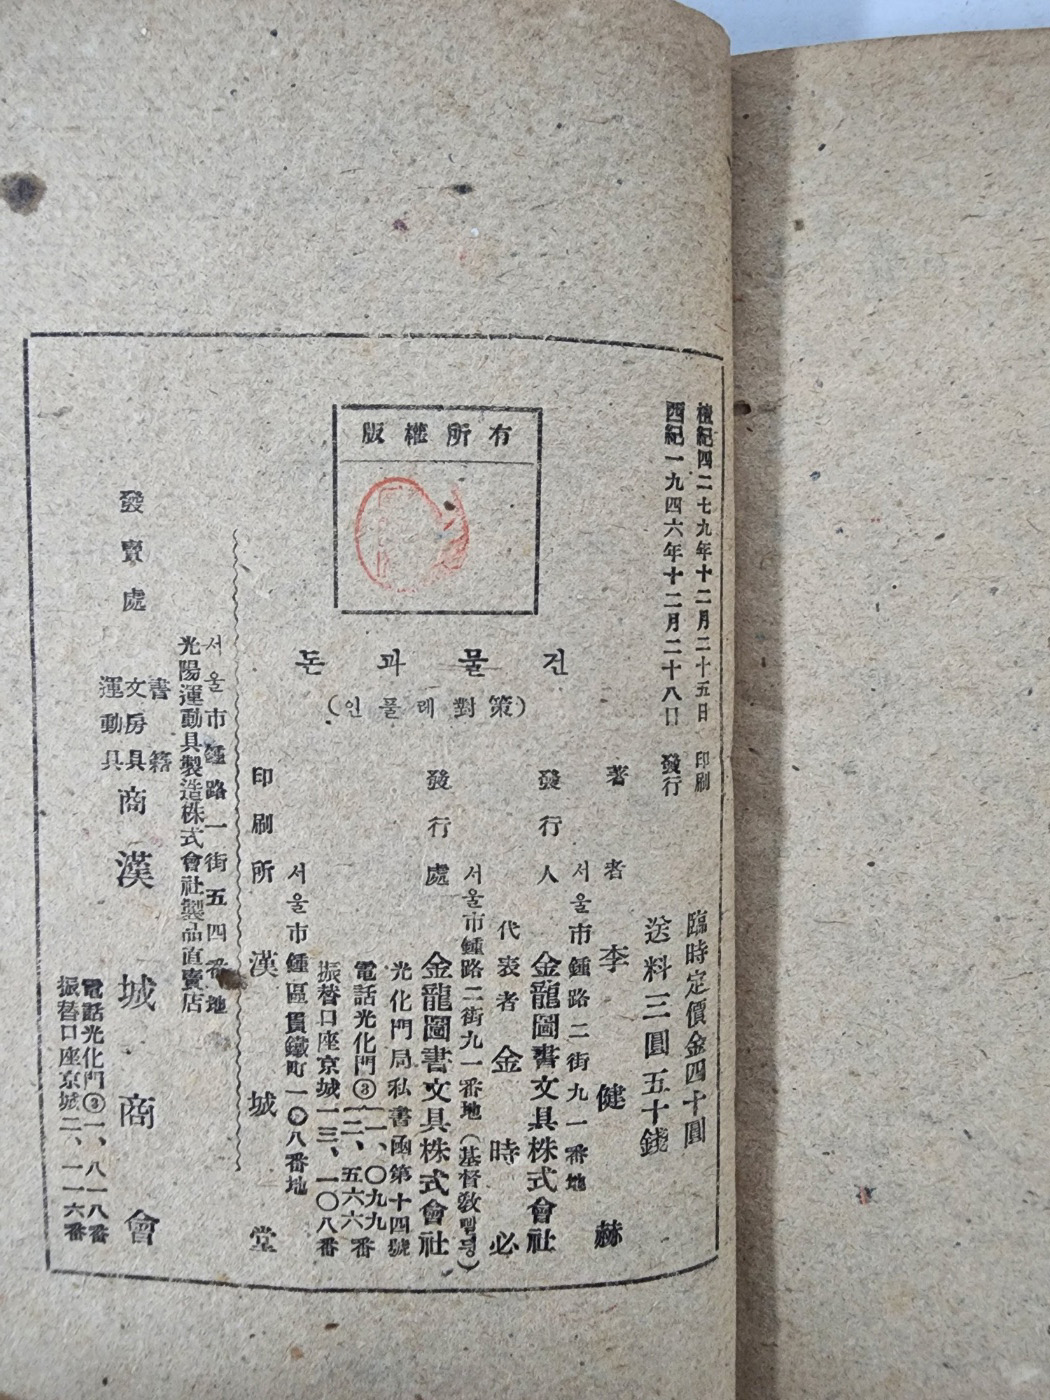 檀紀四二七九年十二月二十五日 印刷
西紀一九四六年十二月二十八日 發行
臨時定價金四十圓
送料三圓五十錢
版權所有
돈과물건
(인플레對策)
著者 李健赫
서울市鍾路二街九一番地
發行人 金龍圖書文具株式會社
代表者 金時必
서울市鍾路二街九一番地(基督敎삘딍)
發行處 金龍圖書文具株式會社
光化門局私書函第十四號
電話光化門③一一、〇九九 二、五六六番
振替口座京城一三、一〇八番
서울市鍾區貫鐵町一〇八番地
印刷所 漢城堂
서울市鍾路一街五四番地
光陽運動具製造株式會社製品直賣店
發賣處 書籍 文房具 運動具 商 漢城商會
電話光化門③一、八一八番
振替口座京城二、一一六番